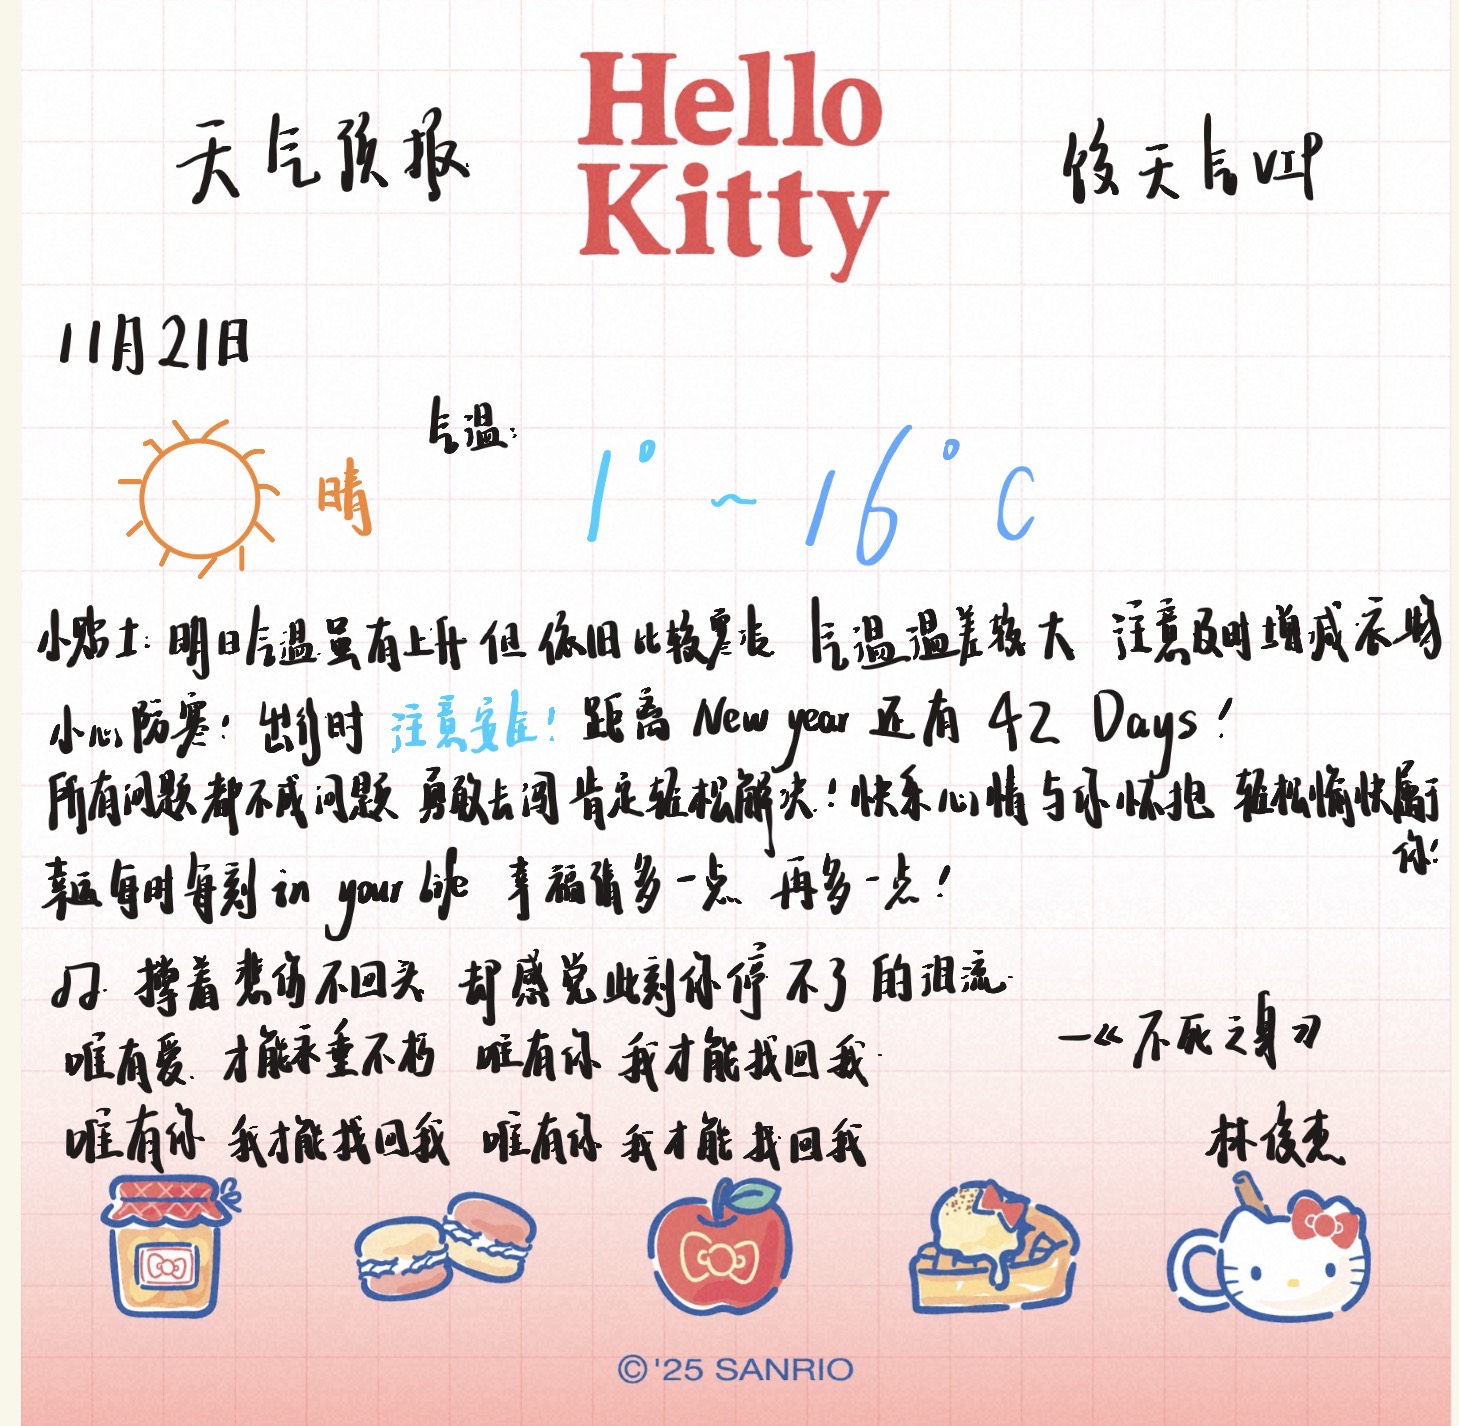 Hello
Kitty
天气预报
俊天气VIP
11月21日
气温:
晴
1°~16°C
小贴士:明日气温虽有上升 但依旧比较寒冷 气温温差较大 注意及时增减衣物
小心防寒!出行时 注意安全!距离 New year 还有 42 Days!
所有问题都不成问题 勇敢去闯 肯定轻松解决!快乐心情与你怀抱 轻松愉快属于
你!
幸运每时每刻 in your life 幸福请多一点 再多一点!
♫ 撑着悲伤不回头 却感觉此刻你停不了的泪流
唯有爱 才能永垂不朽 唯有你 我才能找回我
—《不死之身》
唯有你 我才能找回我 唯有你 我才能找回我
林俊杰
©'25 SANRIO